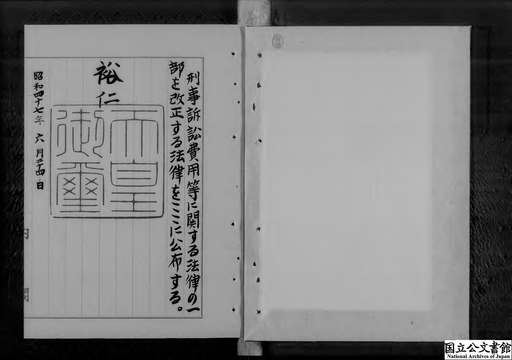 刑事訴訟費用等に関する法律の一
部を改正する法律をここに公布する。
裕仁
天皇
御璽
昭和四十七年六月二十四日
国立公文書館
National Archives of Japan